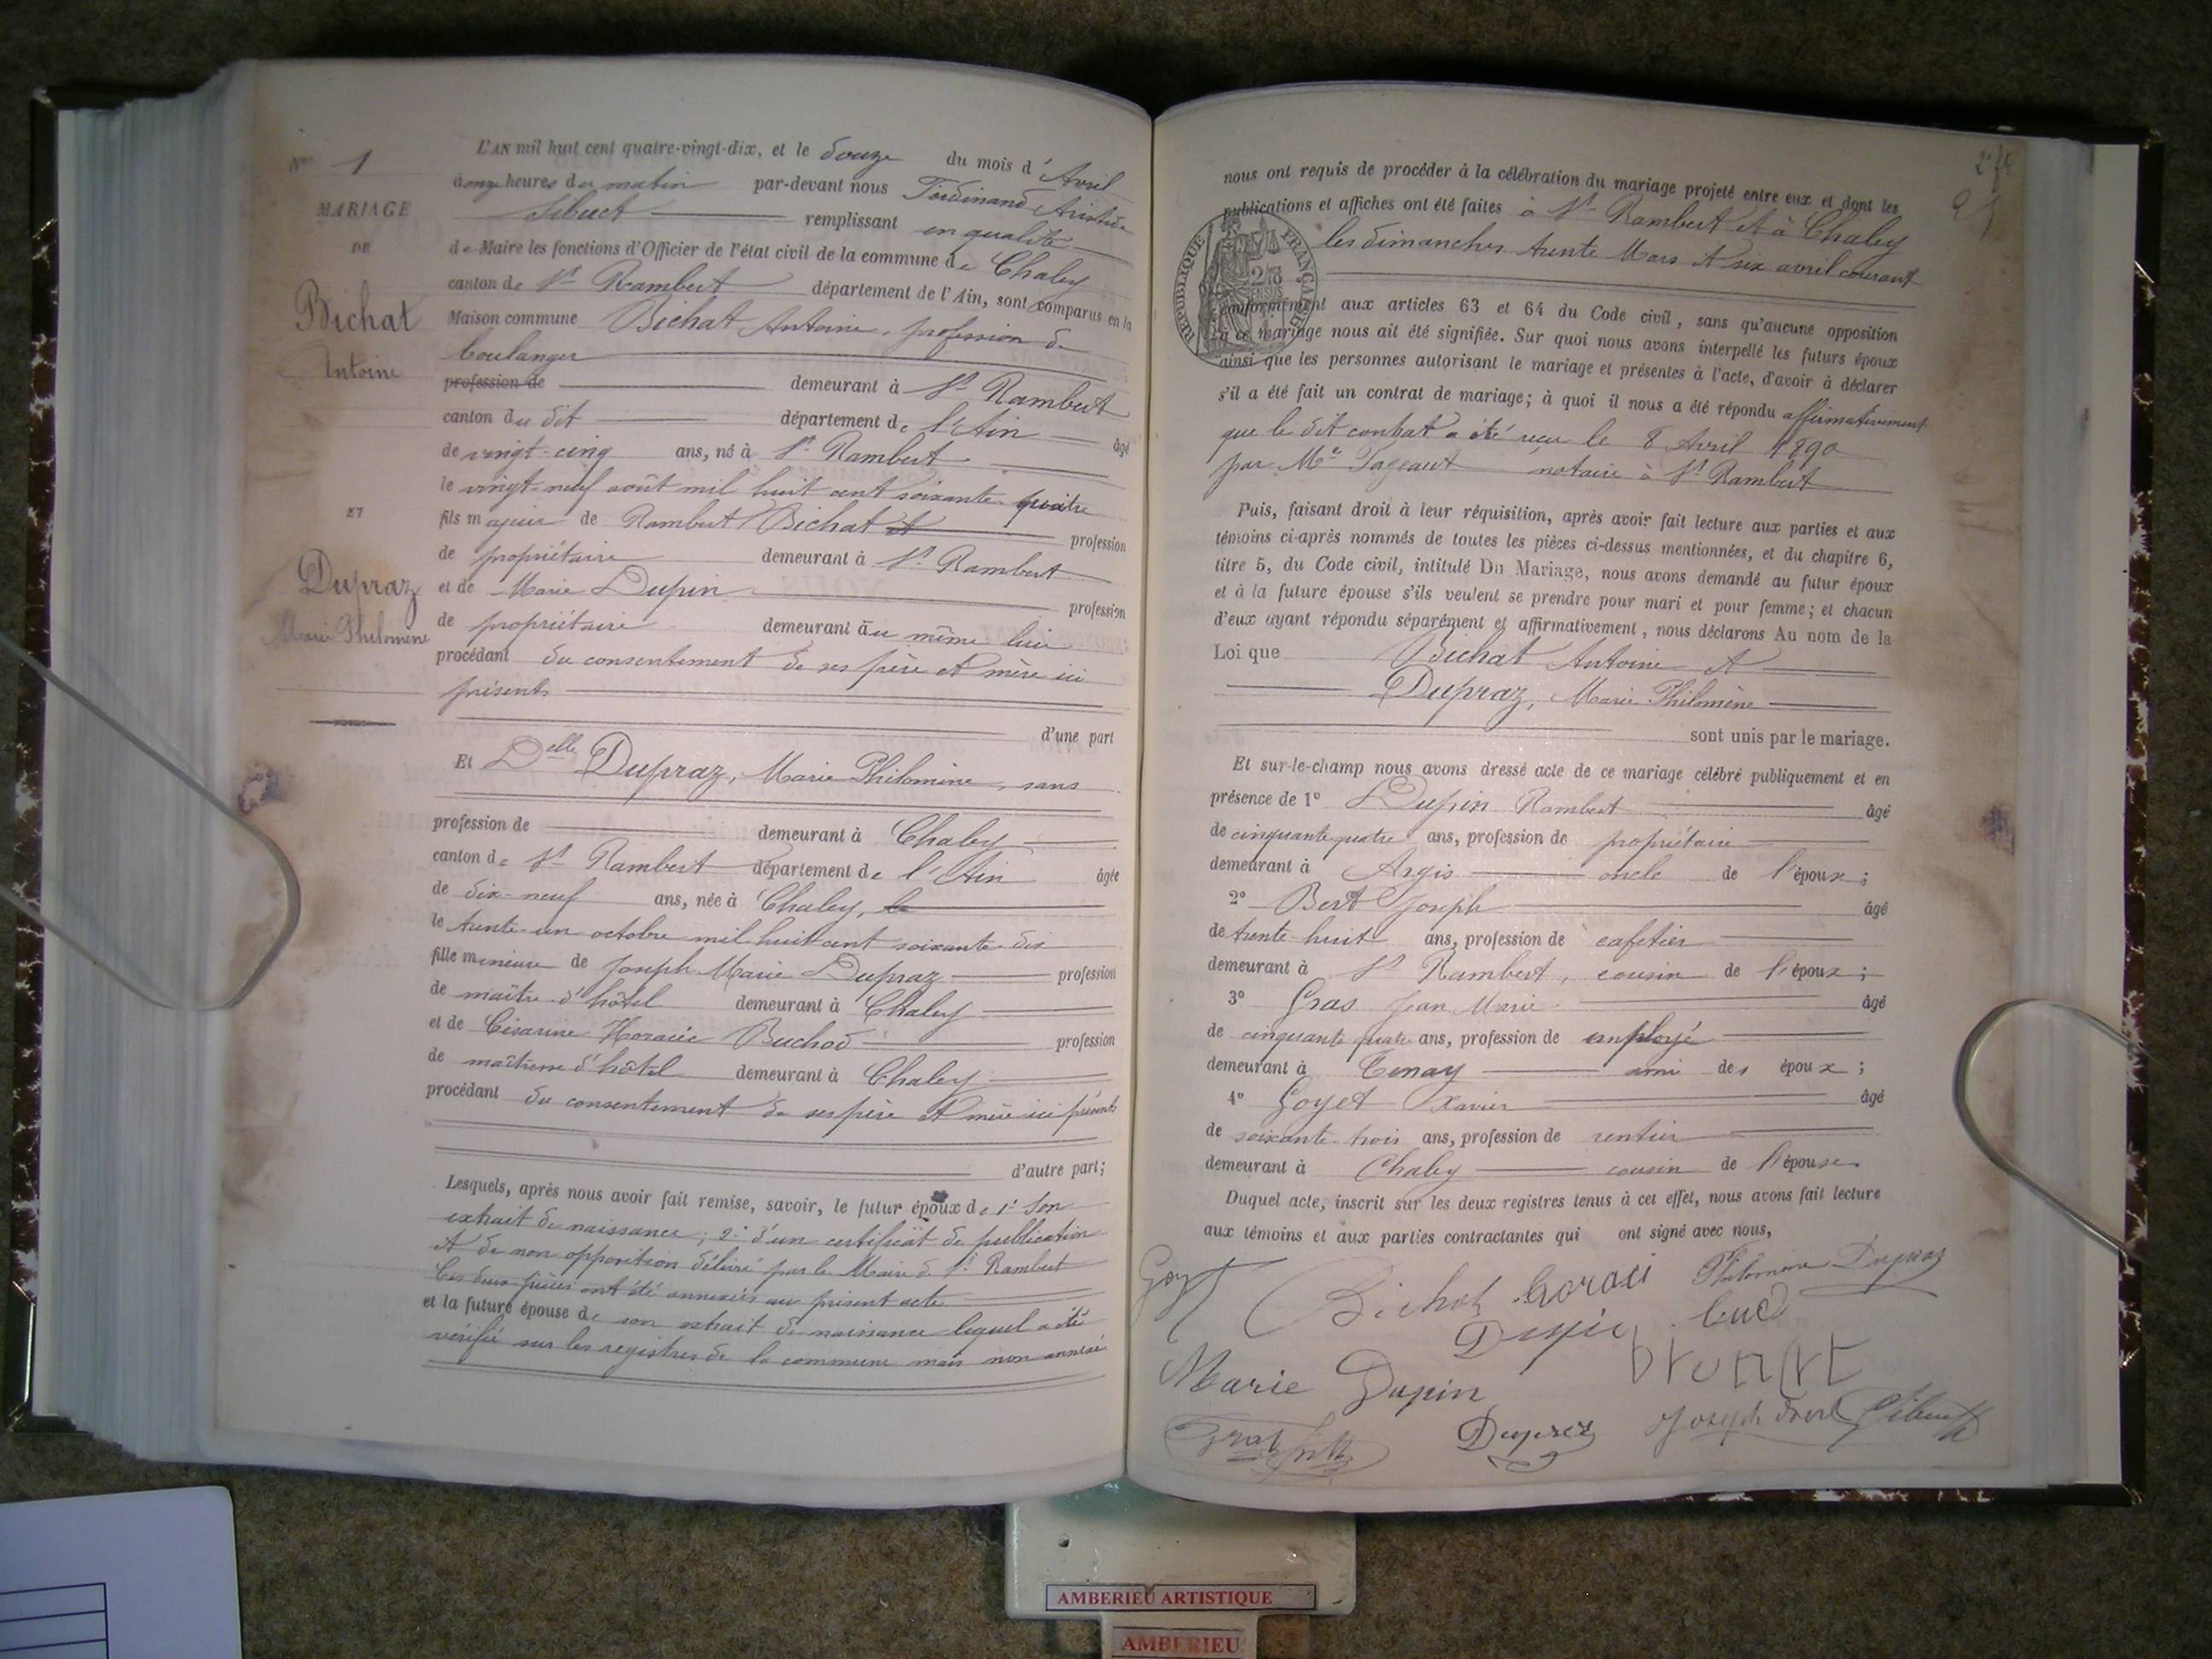 N° 1
MARIAGE
DE
Bichat
Antoine
ET
Dupraz
Marie Philomène
L'AN mil huit cent quatre-vingt-dix, et le douze du mois d'Avril
à onze heures du matin par-devant nous Ferdinand Aristide
Sibuet remplissant en qualité
de Maire les fonctions d'Officier de l'état civil de la commune de Chaley
canton de St Rambert département de l'Ain, sont comparus en la
Maison commune Bichat Antoine, profession de
boulanger
profession de demeurant à St Rambert
canton du dit département de l'Ain âgé
de vingt-cinq ans, né à St Rambert
le vingt-neuf août mil huit cent soixante-quatre
fils majeur de Rambert Bichat et profession
de propriétaire demeurant à St Rambert
et de Marie Dupin profession
de propriétaire demeurant au même lieu
procédant du consentement de ses père et mère ici
présents
d'une part
Et Delle Dupraz, Marie Philomène, sans
profession de demeurant à Chaley
canton de St Rambert département de l'Ain âgée
de dix-neuf ans, née à Chaley, le
le trente-un octobre mil huit cent soixante-dix
fille mineure de Joseph Marie Dupraz profession
de maître d'hôtel demeurant à Chaley
et de Césarine Horacie Buchod profession
de maîtresse d'hôtel demeurant à Chaley
procédant du consentement de ses père et mère ici présents
d'autre part;
Lesquels, après nous avoir fait remise, savoir, le futur époux de 1° Son
extrait de naissance; 2° d'un certificat de publication
et de non opposition délivré par le Maire de St Rambert
Ces deux pièces ont été annexées au présent acte
et la future épouse de son extrait de naissance lequel a été
vérifié sur les registres de la commune mais non annexé
nous ont requis de procéder à la célébration du mariage projeté entre eux et dont les
publications et affiches ont été faites à St Rambert et à Chaley
les dimanches trente Mars et six avril courant
RÉPUBLIQUE FRANÇAISE
conformément aux articles 63 et 64 du Code civil, sans qu'aucune opposition
à ce mariage nous ait été signifiée. Sur quoi nous avons interpellé les futurs époux
ainsi que les personnes autorisant le mariage et présentes à l'acte, d'avoir à déclarer
s'il a été fait un contrat de mariage; à quoi il nous a été répondu affirmativement
que le dit contrat a été reçu le 8 Avril 1890
par Me notaire à St Rambert
Puis, faisant droit à leur réquisition, après avoir fait lecture aux parties et aux
témoins ci-après nommés de toutes les pièces ci-dessus mentionnées, et du chapitre 6,
titre 5, du Code civil, intitulé Du Mariage, nous avons demandé au futur époux
et à la future épouse s'ils veulent se prendre pour mari et pour femme; et chacun
d'eux ayant répondu séparément et affirmativement, nous déclarons Au nom de la
Loi que Bichat Antoine et
Dupraz, Marie Philomène
sont unis par le mariage.
Et sur-le-champ nous avons dressé acte de ce mariage célébré publiquement et en
présence de 1° Dupin Rambert âgé
de cinquante-quatre ans, profession de propriétaire
demeurant à Argis oncle de l'époux;
2° Bert Joseph âgé
de trente-huit ans, profession de cafetier
demeurant à St Rambert, cousin de l'époux;
3° Gras Jean Marie âgé
de cinquante quatre ans, profession de employé
demeurant à Tenay ami des époux;
4° Goyet Xavier âgé
de soixante-trois ans, profession de rentier
demeurant à Chaley cousin de l'épouse
Duquel acte, inscrit sur les deux registres tenus à cet effet, nous avons fait lecture
aux témoins et aux parties contractantes qui ont signé avec nous,
Bichat Philomène Dupraz
Marie Dupin
AMBERIEU ARTISTIQUE
AMBERIEU